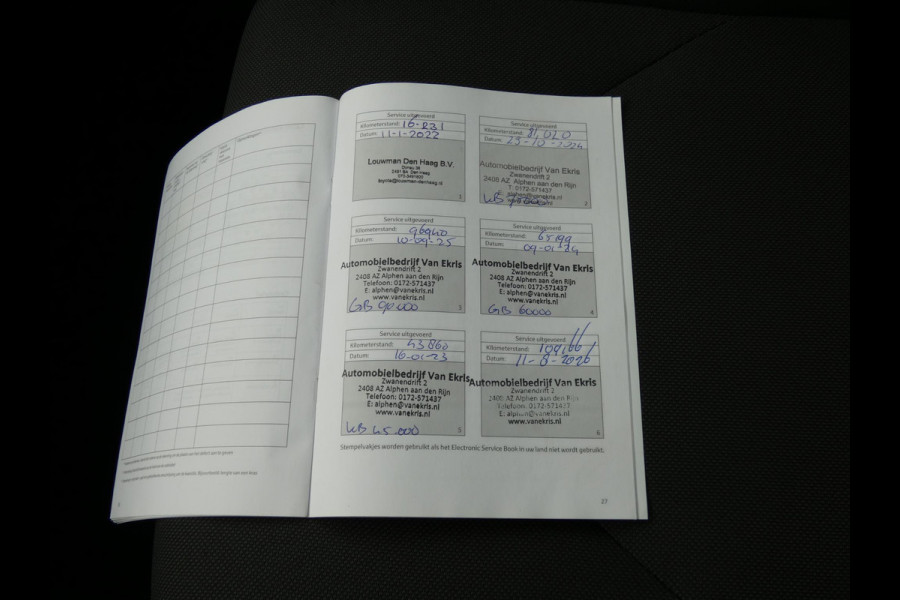 Service uitgevoerd
Kilometerstand: 16-231
Datum: 11-1-2022
Louwman Den Haag B.V.
Donau 36
1
Service uitgevoerd
Kilometerstand: 81,020
Datum: 25-10-2024
Automobielbedrijf Van Ekris
Zwanendrift 2
2408 AZ Alphen aan den Rijn
T: 0172-571437
E: alphen@vanekris.nl
2
Service uitgevoerd
Kilometerstand: 96940
Datum: 10-09-25
Automobielbedrijf Van Ekris
Zwanendrift 2
2408 AZ Alphen aan den Rijn
Telefoon: 0172-571437
E: alphen@vanekris.nl
www.vanekris.nl
GB 90.000
3
Service uitgevoerd
Kilometerstand: 65199
Datum: 09-01-24
Automobielbedrijf Van Ekris
Zwanendrift 2
2408 AZ Alphen aan den Rijn
Telefoon: 0172-571437
E: alphen@vanekris.nl
www.vanekris.nl
GB 60000
4
Service uitgevoerd
Kilometerstand: 43860
Datum: 16-01-23
Automobielbedrijf Van Ekris
Zwanendrift 2
2408 AZ Alphen aan den Rijn
Telefoon: 0172-571437
E: alphen@vanekris.nl
www.vanekris.nl
KB 45.000
5
Service uitgevoerd
Kilometerstand:
Datum: 11-8-2026
Automobielbedrijf Van Ekris
Zwanendrift 2
2408 AZ Alphen aan den Rijn
Telefoon: 0172-571437
E: alphen@vanekris.nl
www.vanekris.nl
6
Stempelvakjes worden gebruikt als het Electronic Service Book in uw land niet wordt gebruikt.
27